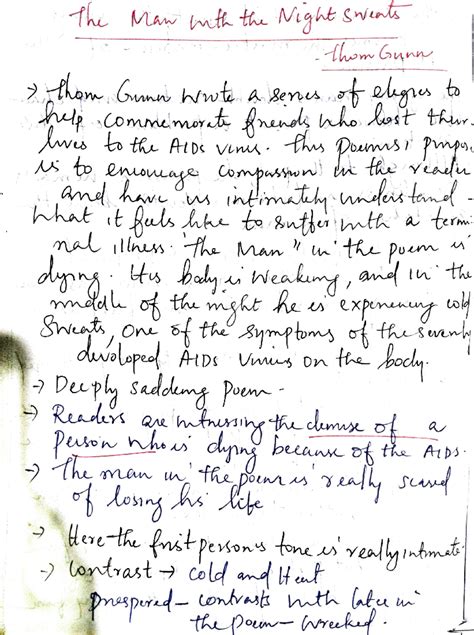 The Man with the Night Sweats
- Thom Gunn
→ Thom Gunn wrote a series of elegies to
help commemorate friends who lost their
lives to the AIDS virus. This Poems' purpose
is to encourage compassion in the reader
and have us intimately understand -
what it feels like to suffer with a termi
nal illness. "The Man" in the poem is
dying. His body is weakening, and in the
middle of the night he is experiencing cold
Sweats, one of the symptoms of the severly
devoloped AIDS virus on the body.
→ Deeply saddening poem -
→ Readers are witnessing the demise of a
Person who is dying because of the AIDS.
→ The man in the poem is really scared
of losing his life
→ Here the first person's tone is really intimate
→ Contrast → cold and Heat
prospered - contrasts with later in
the poem - wrecked.